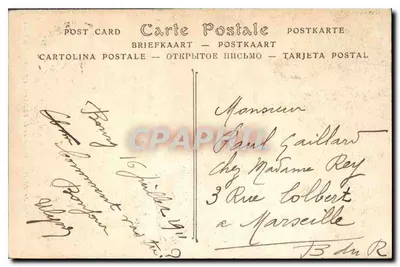 POST CARD Carte Postale POSTKARTE
BRIEFKAART — POSTKAART
CARTOLINA POSTALE — ОТКРЫТОЕ ПИСЬМО — TARJETA POSTAL
Bourg 16 Juillet 1911
Comment vas tu?
Bonjour
Monsieur
Paul Gaillard
chez Madame Rey
3 Rue Colbert
a Marseille
B du R